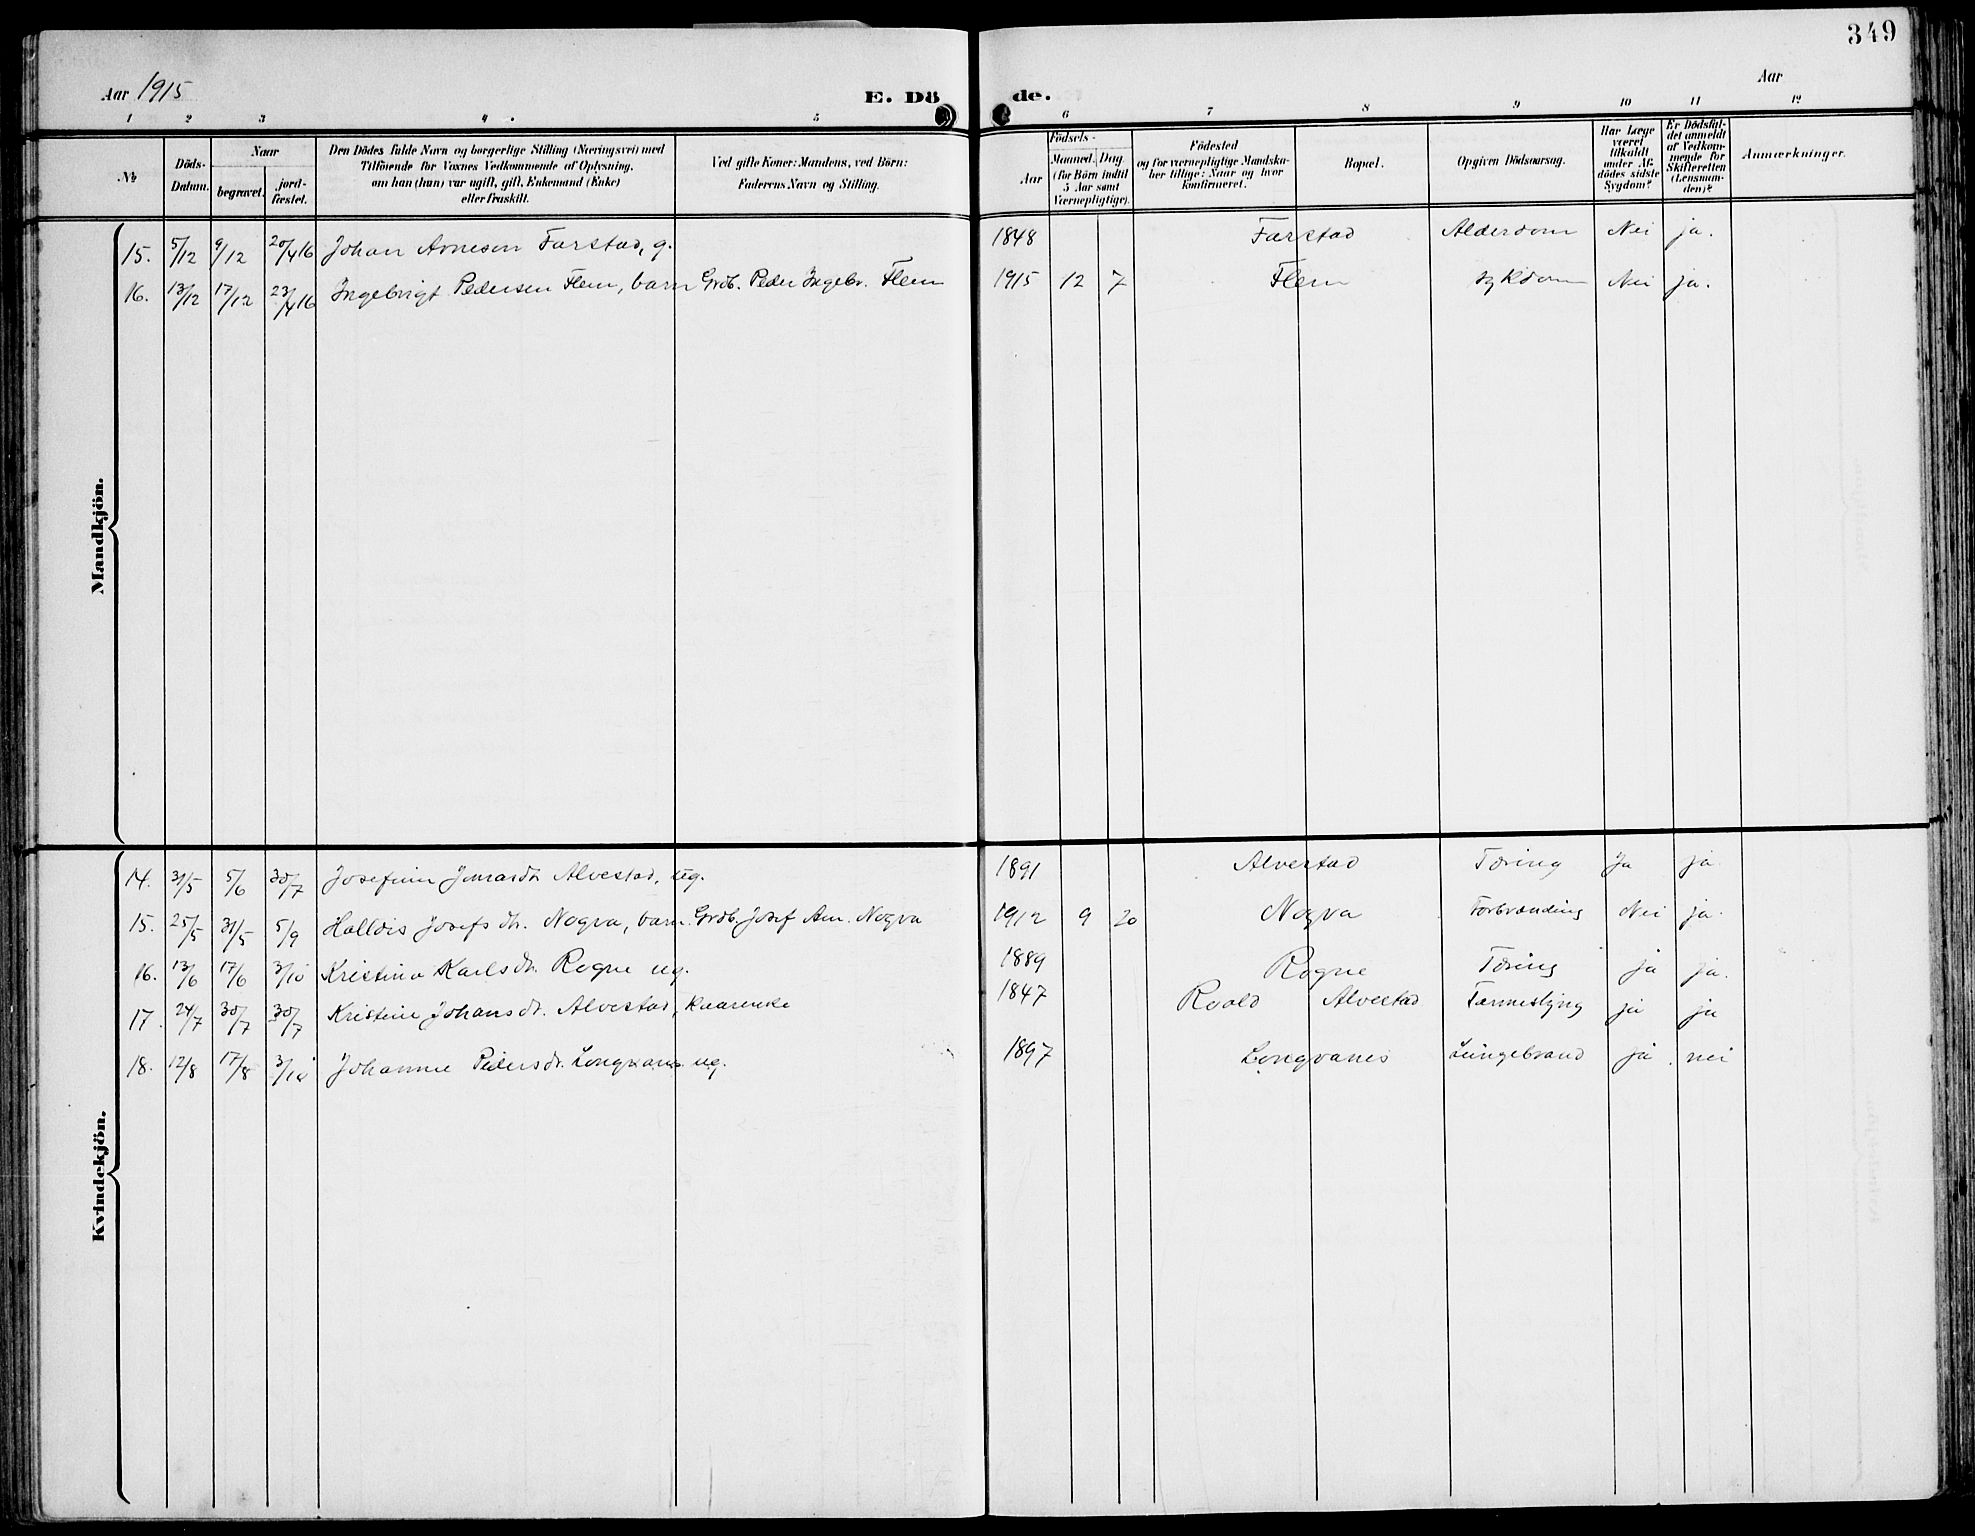 349
Aar 1915 E. Dö de. Aar
1 2 3 4 5 6 7 8 9 10 11 12
№ Döds-Datum. Naar begravet. jord-fæstet. Den Dödes fulde Navn og borgerlige Stilling (Næringsvei) med Tilföiende for Voxnes Vedkommende af Oplysning, om han (hun) var ugift, gift, Enkemand (Enke) eller fraskilt. Ved gifte Koner: Mandens, ved Börn: Faderens Navn og Stilling. Födsels- Aar Maaned. Dag. (for Börn indtil 5 Aar samt Værnepligtige). Födested og for værnepligtige Mandskaber tillige: Naar og hvor konfirmeret. Bopæl. Opgiven Dödsaarsag. Har Læge været tilkaldt under Afdödes sidste Sygdom? Er Dödsfaldet anmeldt af Vedkommende for Skifteretten (Lensmanden)? Anmærkninger.
Mandkjön.
15. 5/12 9/12 20/4 16 Johan Arnesen Farstad, g. 1848 Farstad Alderdom Nei ja.
16. 13/12 17/12 23/4 16 Ingebrigt Pedersen Flem, barn Grdb. Peder Ingebr. Flem 1915 12 7 Flem sykdom Nei ja.
Kvindekjön.
14. 31/5 5/6 30/7 Josefine Alvestad, ug. 1891 Alvestad Tæring Ja ja.
15. 25/5 31/5 5/9 Halldis Josefs dr. Nogva, barn. Grdb. Josef Am. Nogva 1912 9 20 Nogva Forbrænding Nei ja.
16. 13/6 17/6 3/10 Kristina Karls dr. Rogne ug. 1889 Rogne Tæring ja ja.
17. 24/7 30/7 30/7 Kristine Johans dr. Alvestad, kaarenke 1847 Roald Alvestad Tarmeslyng ja ja
18. 12/8 17/8 3/10 Johanne Peders dr. Longvanes ug. 1897 Longvanes Lungebrand ja. nei